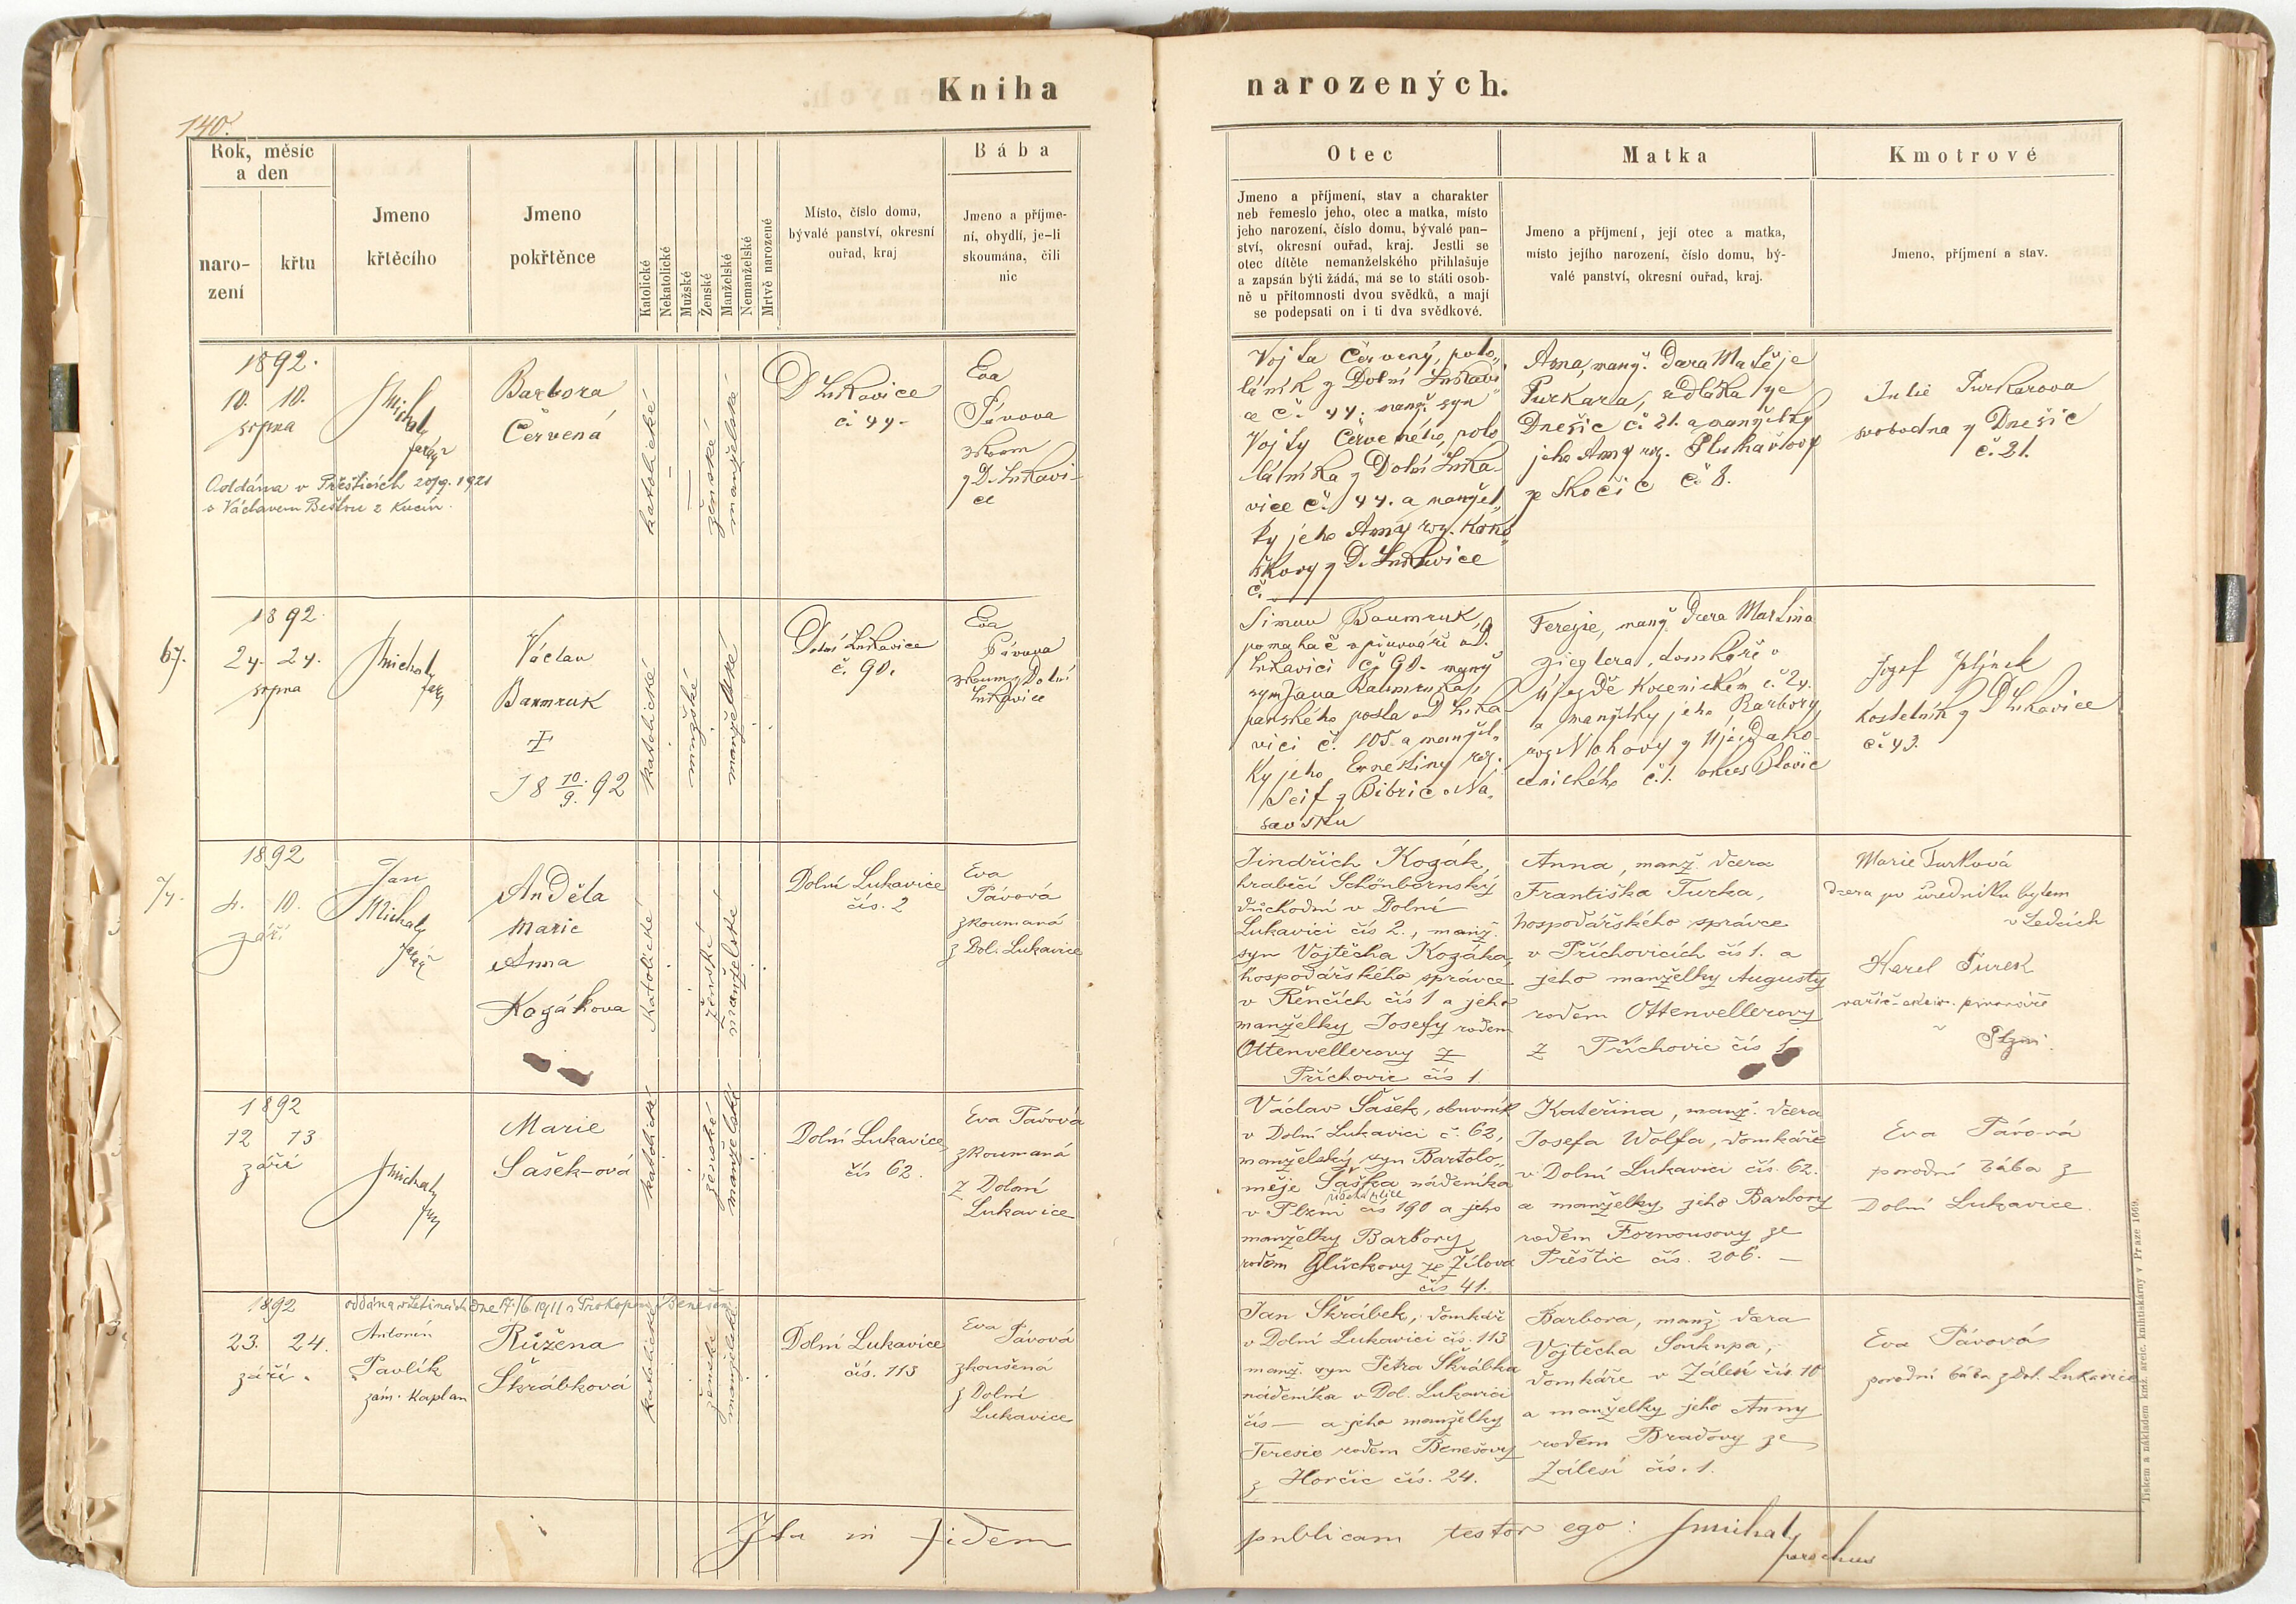 Kniha
narozených.
140.
Rok, měsíc
a den
naro-
zení
křtu
Jmeno
křtěcího
Jmeno
pokřtěnce
Katolické
Nekatolické
Mužské
Ženské
Manželské
Nemanželské
Mrtvě narozené
Místo, číslo domu,
bývalé panství, okresní
ouřad, kraj
Bába
Jmeno a příjme-
ní, obydlí, je-li
skoumána, čili
nic
Otec
Jmeno a příjmení, stav a charakter
neb řemeslo jeho, otec a matka, místo
jeho narození, číslo domu, bývalé pan-
ství, okresní ouřad, kraj. Jestli se
otec dítěte nemanželského přihlašuje
a zapsán býti žádá, má se to státi osob-
ně u přítomnosti dvou svědků, a mají
se podepsati on i ti dva svědkové.
Matka
Jmeno a příjmení, její otec a matka,
místo jejího narození, číslo domu, bý-
valé panství, okresní ouřad, kraj.
Kmotrové
Jmeno, příjmení a stav.
1892.
10. 10.
srpna
JMichal
farář
Barbora
Červená
katolické
ženské
manželské
D Lukavice
č. 44.
Eva
Pávova
zkoum
z D. Lukavi-
ce
Oddána v Přešticích 20/9. 1921
s Václavem Beštou z Kucín.
Vojta Červený, polo„
láník z Dolní Lukavi
ce č. 44. manž. syn
Vojty Červeného, polo
láníka z Dolní Luka-
vice č. 44. a manžel„
ky jeho Anny roz. Kono„
škovy z D. Lukavice
č.
Anna, manž. dcera Matěje
Purkara, sedláka ze
Dnešic č. 21. a manželky
jeho Anny roz.
ze Skočic č 8.
Julie Purkarova
svobodna z Dnešic
č. 21.
67.
1892.
24. 24.
srpna
JMichal
far
Václav
Baumruk
†
18 10/9. 92
katolické
mužské
manželské
Dolní Lukavice
č. 90.
Eva
Pávova
zkoum z Dolní
Lukavice
Simon Baumruk,
pomahač v pivováře v D.
Lukavici č. 90. manž
syn Jana Baumruka,
panského posla v D Luka-
vici č. 105. a manžel„
ky jeho Ernestiny roz.
Seif z Bibric v Na„
savsku
Terezie, manž. dcera Martina
Zieglera, domkáře v
Újezdě Kocenickém č. 24.
a manželky jeho Barbory
roz Nohovy z Ujezda Ko-
cenického č. 1. okres Blovic
Jozef Jelínek
Kostelník z D Lukavice
č. 43.
1892
4. 10.
září
Jan
Michal
farář
Anděla
Marie
Anna
Kozákova
Katolické
ženské
manželské
Dolní Lukavice
čís. 2
Eva
Pávová
zkoumaná
z Dol. Lukavice
Jindřich Kozák,
hraběcí Schönbornský
důchodní v Dolní
Lukavici čís 2., manž.
syn Vojtěcha Kozáka,
hospodářského správce
v Řenčích čís 1 a jeho
manželky Josefy rodem
Ottenvellerovy z
Příchovic čís 1
Anna, manž. dcera
Františka Turka,
hospodářského správce
v Příchovicích čís 1. a
jeho manželky Augusty
rodem Ottenvellerovy
z Příchovic čís 1
Marie Turková
dcera po úředníku bytem
v Ledcích
Karel Turek
Plzni.
1892
12 13
září
JMichal
far
Marie
Sašek-ová
katolické
ženské
manželské
Dolní Lukavice,
čís 62.
Eva Pávová
zkoumaná
z Dolní
Lukavice
Václav Sašek, obuvník
v Dolní Lukavici č. 62,
manželský syn Bartolo„
měje Saška nádeníka
v Plzni čís 190 a jeho
manželky Barbory
rodem Glückovy ze Žilova
čís 41.
Kateřina, manž. dcera
Josefa Wolfa, domkáře
v Dolní Lukavici čís. 62.
a manželky jeho Barbory
rodem Fornousovy ze
Přeštic čís. 206. —
Eva Pávová
porodní bába z
Dolní Lukavice.
1892
23. 24.
září.
oddána v Letinách dne 17./6 1911 s Prokopem Benešem
Antonín
Pavlík
zám. kaplan
Růžena
Škrábková
katolické
ženské
manželské
Dolní Lukavice
čís. 113
Eva
Pávová
zkoušená
z Dolní
Lukavice
Jan Škrábek, domkář
v Dolní Lukavici čís. 113
manž. syn Petra Škrábka
nádeníka v Dol. Lukavici
čís — a jeho manželky
Teresie rodem Benešovy
z Horčic čís. 24.
Barbora, manž. dcera
Vojtěcha Soukupa,
domkáře v Zálesí čís. 10
a manželky jeho Anny
rodem Bradovy ze
Zálesí čís. 1.
Eva Pávová
porodní bába z Dol. Lukavice
Ita in fidem
publicam testor ego: JMichal
parochus
Tiskem a nákladem kníž. arcib. knihtiskárny v Praze 1669.